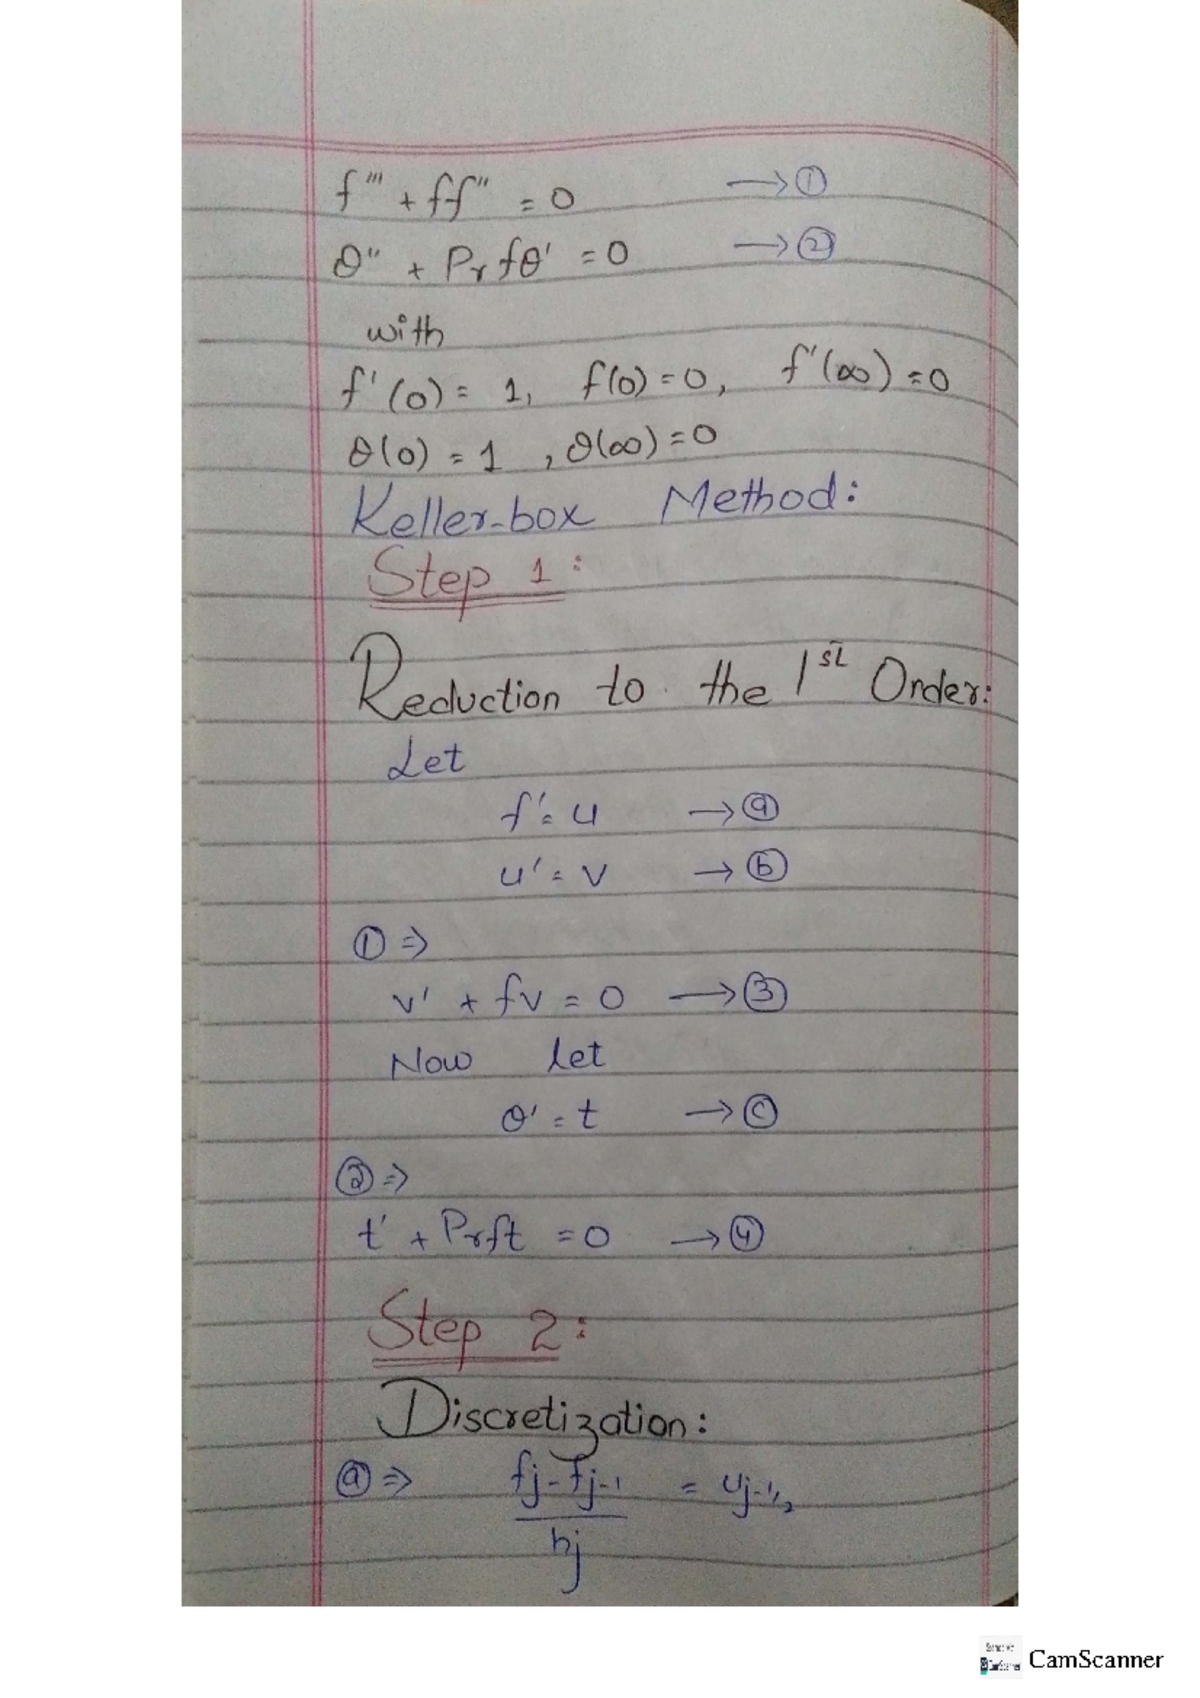 f''' + ff'' = 0 → ①
θ'' + Pr fθ' = 0 → ②
with
f'(0) = 1, f(0) = 0, f'(∞) = 0
θ(0) = 1 , θ(∞) = 0
Keller-box Method:
Step 1:
Reduction to the 1st Order:
Let
f' = u → ⓐ
u' = v → ⓑ
① ⇒
v' + fv = 0 → ③
Now Let
θ' = t → ⓒ
② ⇒
t' + Prft = 0 → ④
Step 2:
Discretization:
ⓐ ⇒ fj - fj-1 = uj-1/2
hj
CamScanner